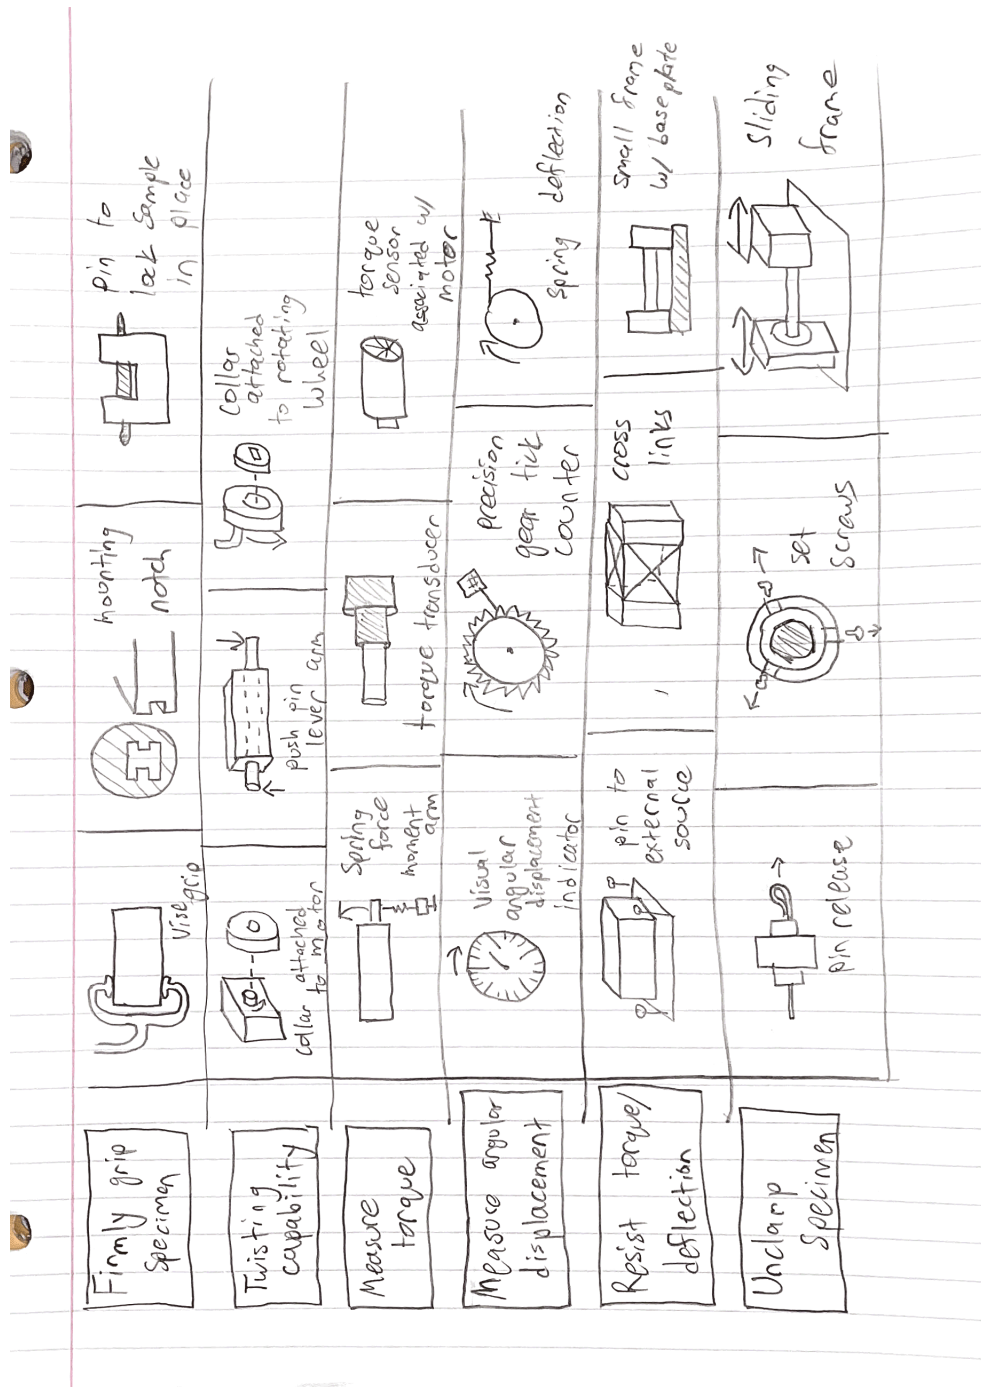 Firmly grip
Specimen
Vise grip
mounting
notch
pin to
lock sample
in place
Twisting
capability
collar attached
to motor
push pin
lever arm
Collar
attached
to rotating
wheel
Measure
torque
Spring
force
moment
arm
torque transducer
torque
sensor
associated w/
motor
Measure angular
displacement
Visual
angular
displacement
indicator
precision
gear tick
counter
Spring deflection
Resist torque/
deflection
pin to
external
source
cross
links
small frame
w/ baseplate
Unclamp
Specimen
pin release
set
screws
Sliding
frame